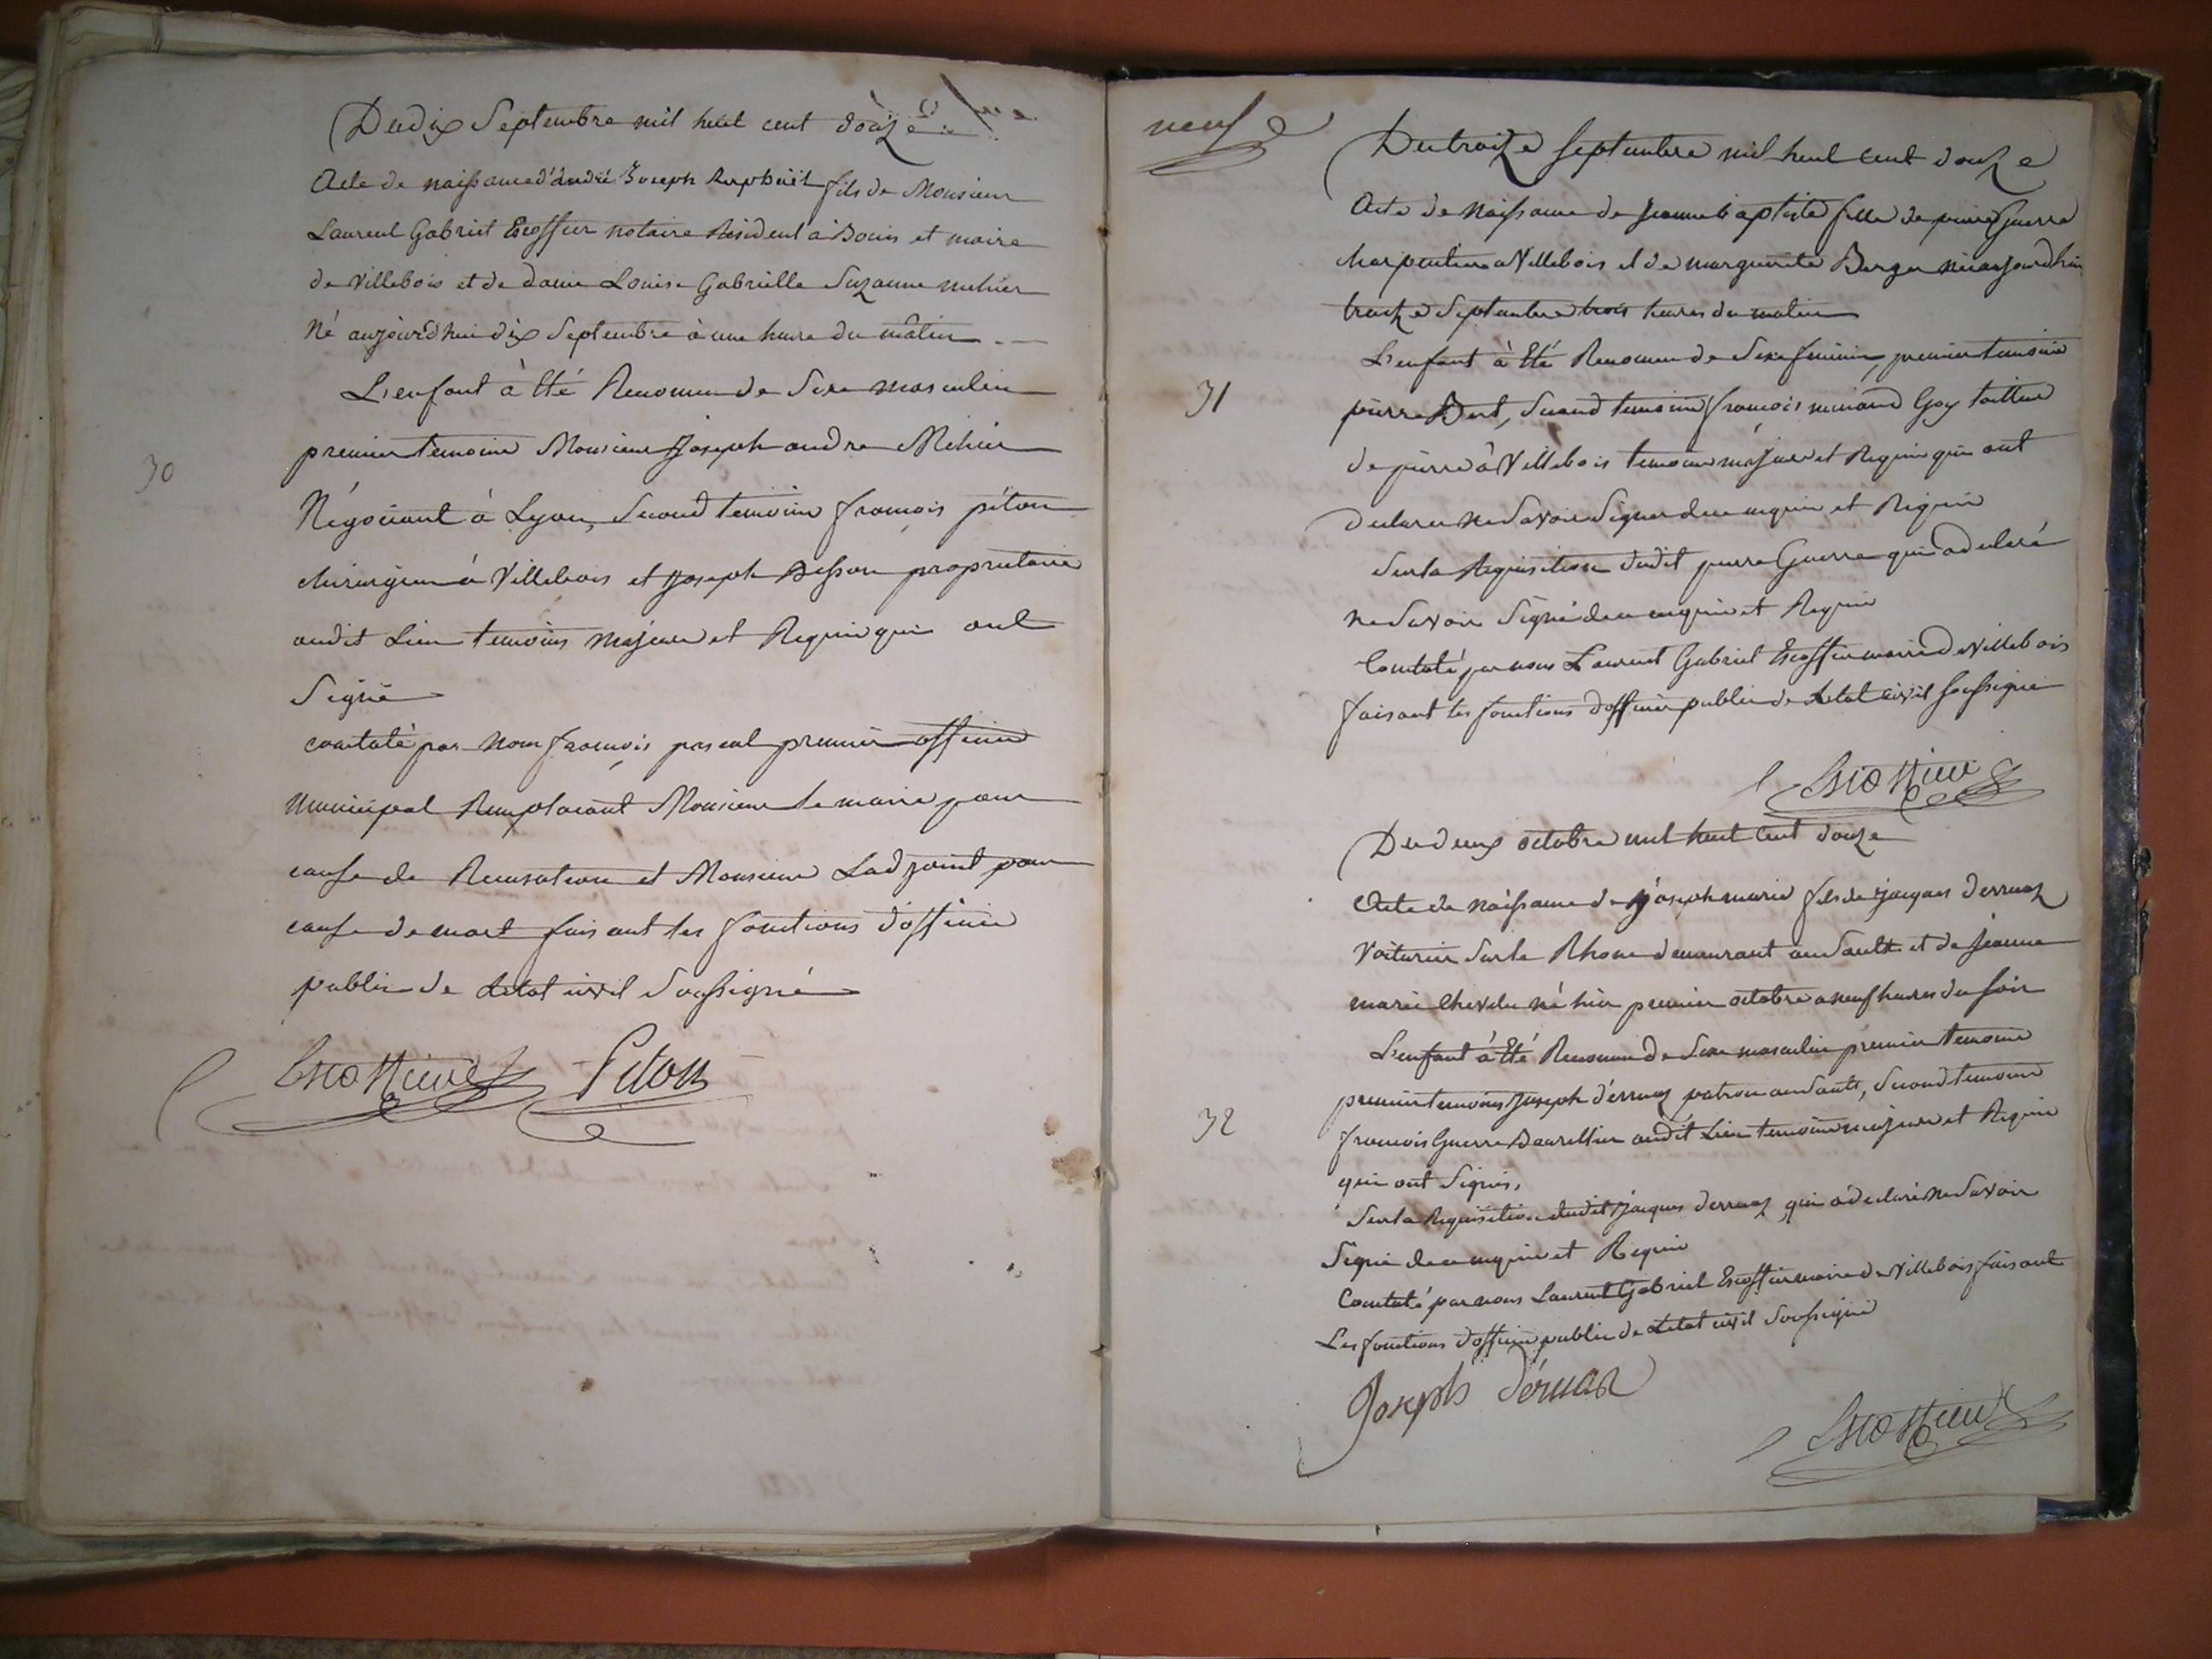 Du dix Septembre mil huit cent douze
Acte de naissance d'andré Joseph Raphaël fils de Monsieur
Laurent Gabriel Escoffier notaire Résident à Bouis et maire
de Villebois et de dame Louise Gabrielle Suzanne mehier
Né aujourd'hui dix Septembre à une heure du matin
L'enfant à été Reconnu de Sexe masculin
30
premier temoin Monsieur Joseph andre Mehier
Négociant à Lyon, Second temoin françois piton
chirurgien à Villebois et Joseph Besson proprietaire
audit Lieu temoins majeur et Requis qui ont
Signé
constaté par Nous françois pascal premier officier
Municipal Remplacant Monsieur le maire pour
cause de Recusation et Monsieur Ladjoint pour
cause de mort faisant les fonctions d'officier
public de Letat civil Soussigné
Escoffier Piton
neuf
Du treize Septembre mil huit cent douze
Acte de Naissance de Jeanne baptiste fille de pierre Guerre
charpentier a Villebois et de marguerite Berger née aujourdhui
treize Septembre trois heures du matin
L'enfant à Eté Reconnu de Sexe feminin, premier temoin
31
pierre Bert, Second temoin françois Goy tailleur
de pierre à Villebois temoins majeur et Requis qui ont
declarer ne Savoir Signer de ce enquis et Requis
Sur la Requisition dudit pierre Guerre qui a declaré
ne Savoir Signé de ce enquis et Requis
Constaté par nous Laurent Gabriel Escoffier maire de Villebois
faisant les fonctions d'officier public de Letat civil Soussigné
Escoffier
Du deux octobre mil huit cent douze
Acte de naissance de Joseph marie fils de Jacques derruaz
Voiturier Sur le Rhone demeurant au Sault et de Jeanne
marie Chevelu né hier premier octobre a neuf heures du soir
L'enfant à Eté Reconnu de Sexe masculin premier temoin
premier temoin Joseph derruaz patron au Sault, Second temoin
32
françois Guerre Bourellier audit Lieu temoins majeur et Requis
qui ont Signés,
Sur la Requisition dudit Jacques derruaz qui a déclaré ne Savoir
Signé de ce enquis et Requis
Constaté par nous Laurent Gabriel Escoffier maire de Villebois faisant
Les fonctions d'officier public de Letat civil Soussigné
Joseph déruaz
Escoffier